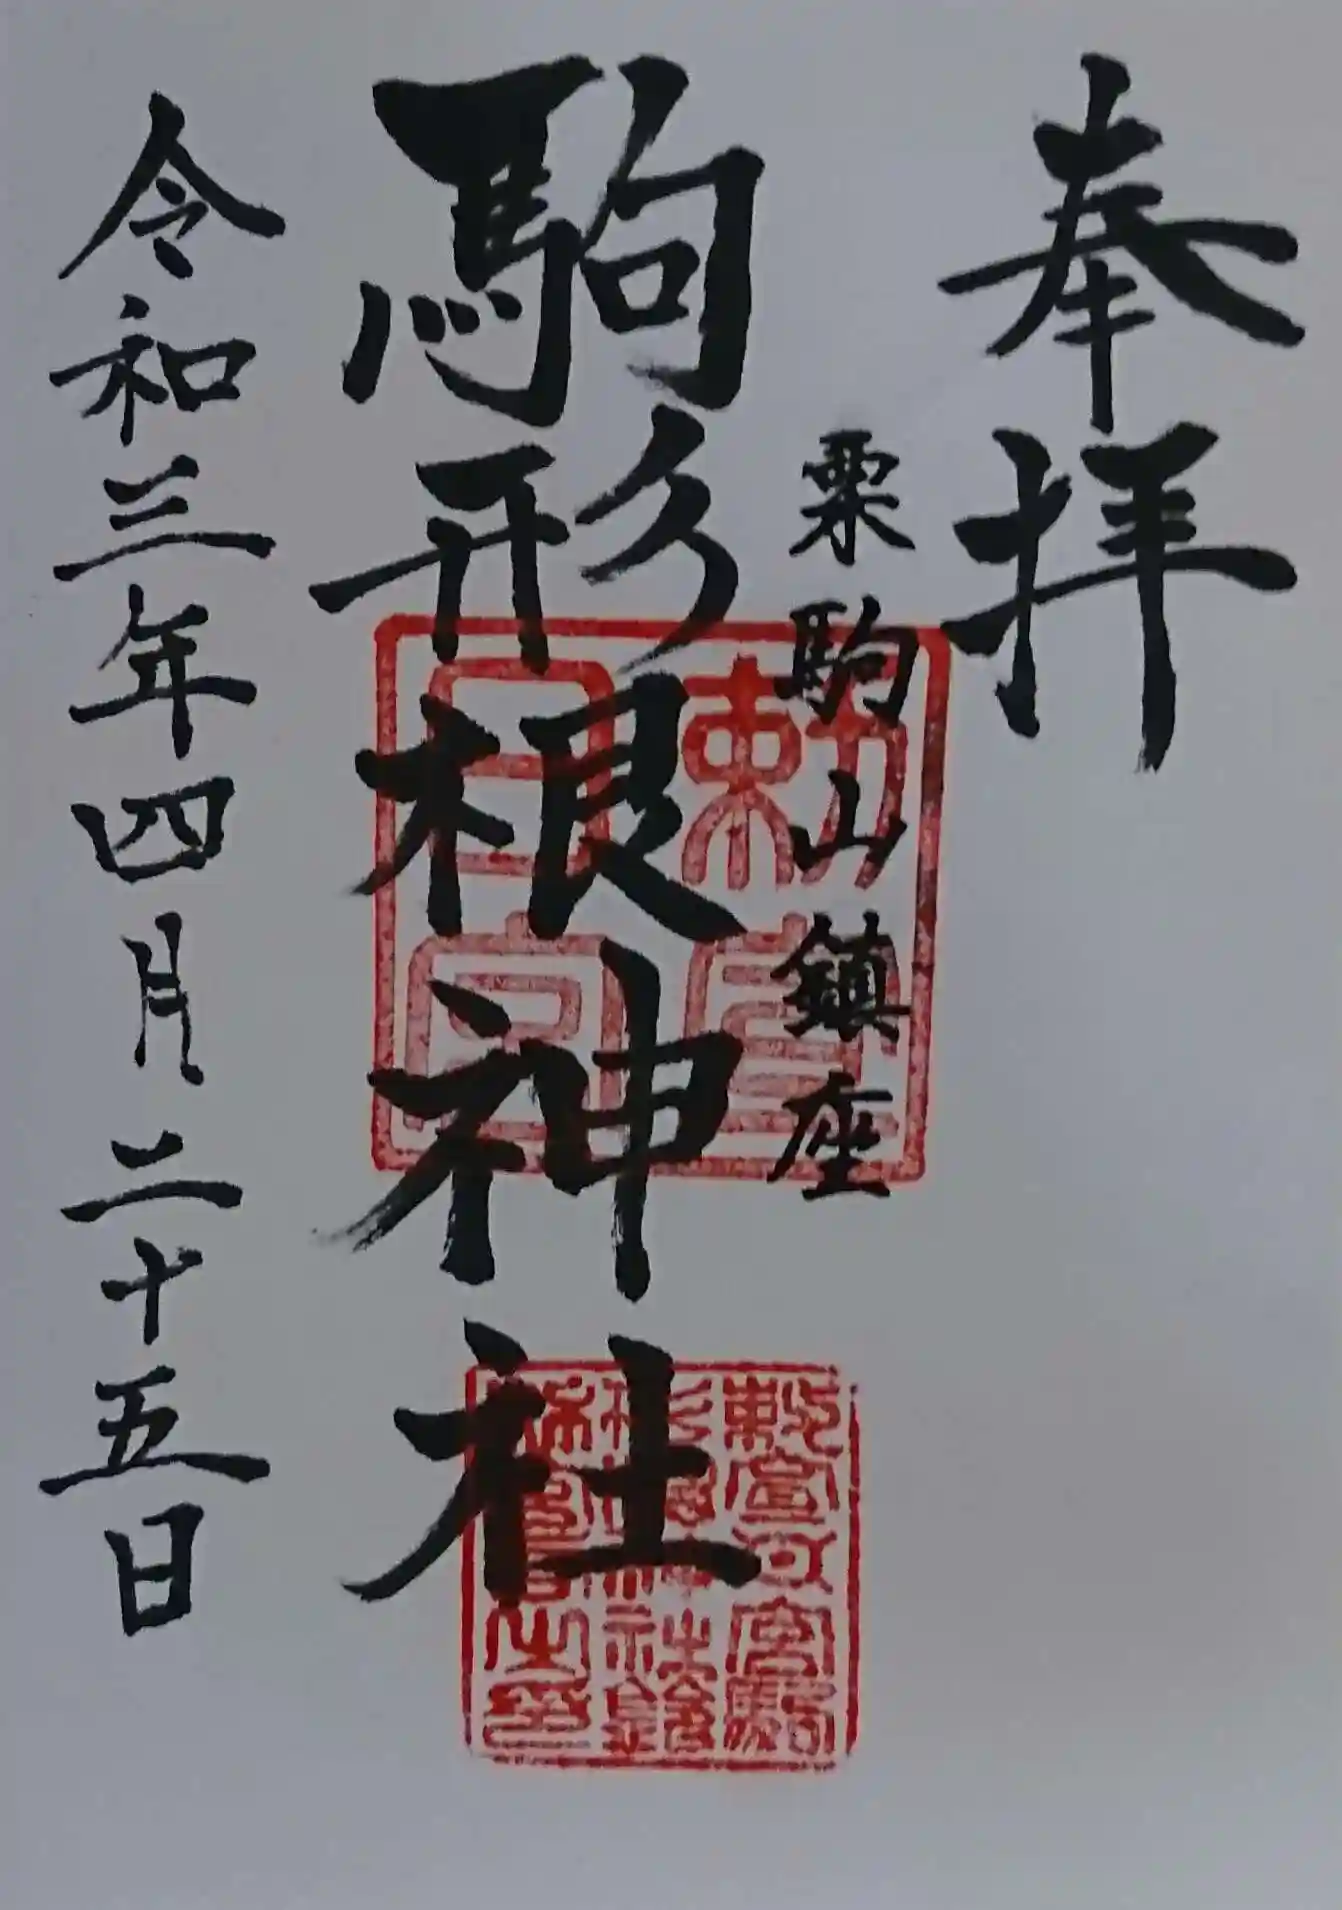 奉拝
栗駒山鎮座
駒形根神社
令和三年四月二十五日
勅宣
日宮